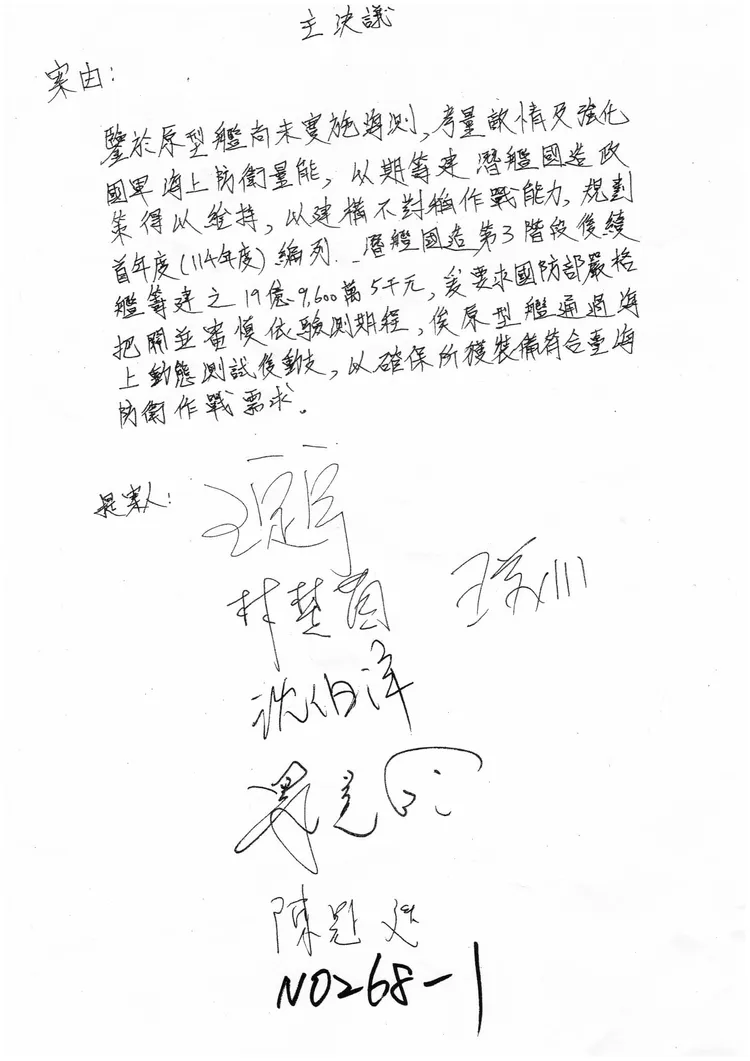 主決議
案由：
鑒於原型艦尚未實施海測，考量敵情及強化
國軍海上防衛量能，以期籌建潛艦國造政
策得以維持，以建構不對稱作戰能力，規劃
首年度(114年度)編列 潛艦國造第3階段後續
艦籌建之19億9,600萬5千元，爰要求國防部嚴格
把關並審慎依驗測期程，俟原型艦通過海
上動態測試後動支，以確保所獲裝備符合臺海
防衛作戰需求。
提案人：
林楚茵 王義川
沈伯洋
陳冠廷
NO268-1